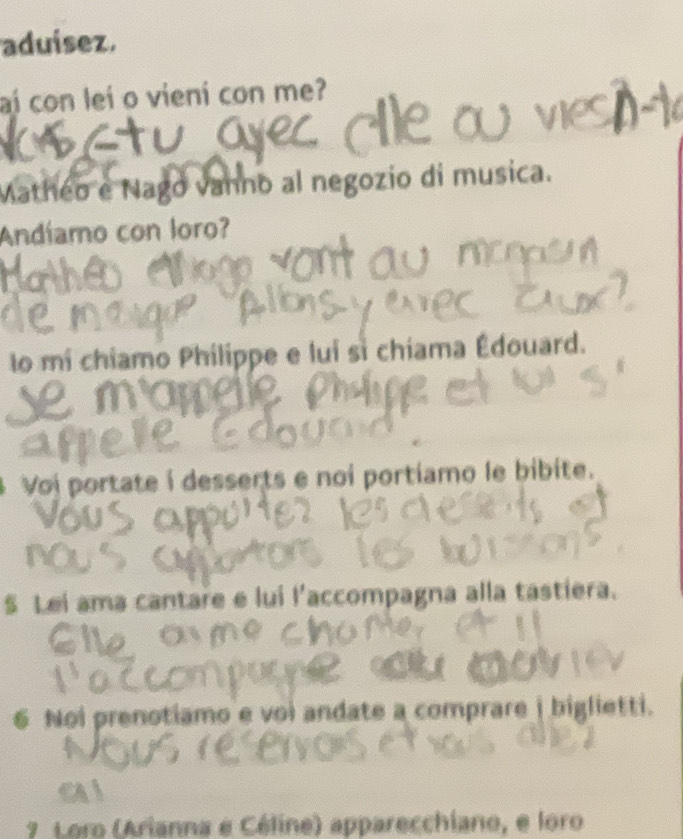 aduisez.
ai con lei o vieni con me?
Vas-tu avec elle ou viens-
avec moi
Mathéo e Nago vanno al negozio di musica.
Andiamo con loro?
Mathéo et Nago vont au magasin
de Allons-y avec eux?
Io mi chiamo Philippe e lui si chiama Édouard.
Je m'appelle Philippe et lui s'
appele Edouard.
Voi portate i desserts e noi portiamo le bibite.
Vous apportez les deserts et
nous apportons les boissons.
5 Lei ama cantare e lui l'accompagna alla tastiera.
Elle aime chanter et il
l'accompagne au clavier
6 Noi prenotiamo e voi andate a comprare i biglietti.
Nous reservons et vous allez
7 Loro (Arianna e Céline) apparecchiano, e loro